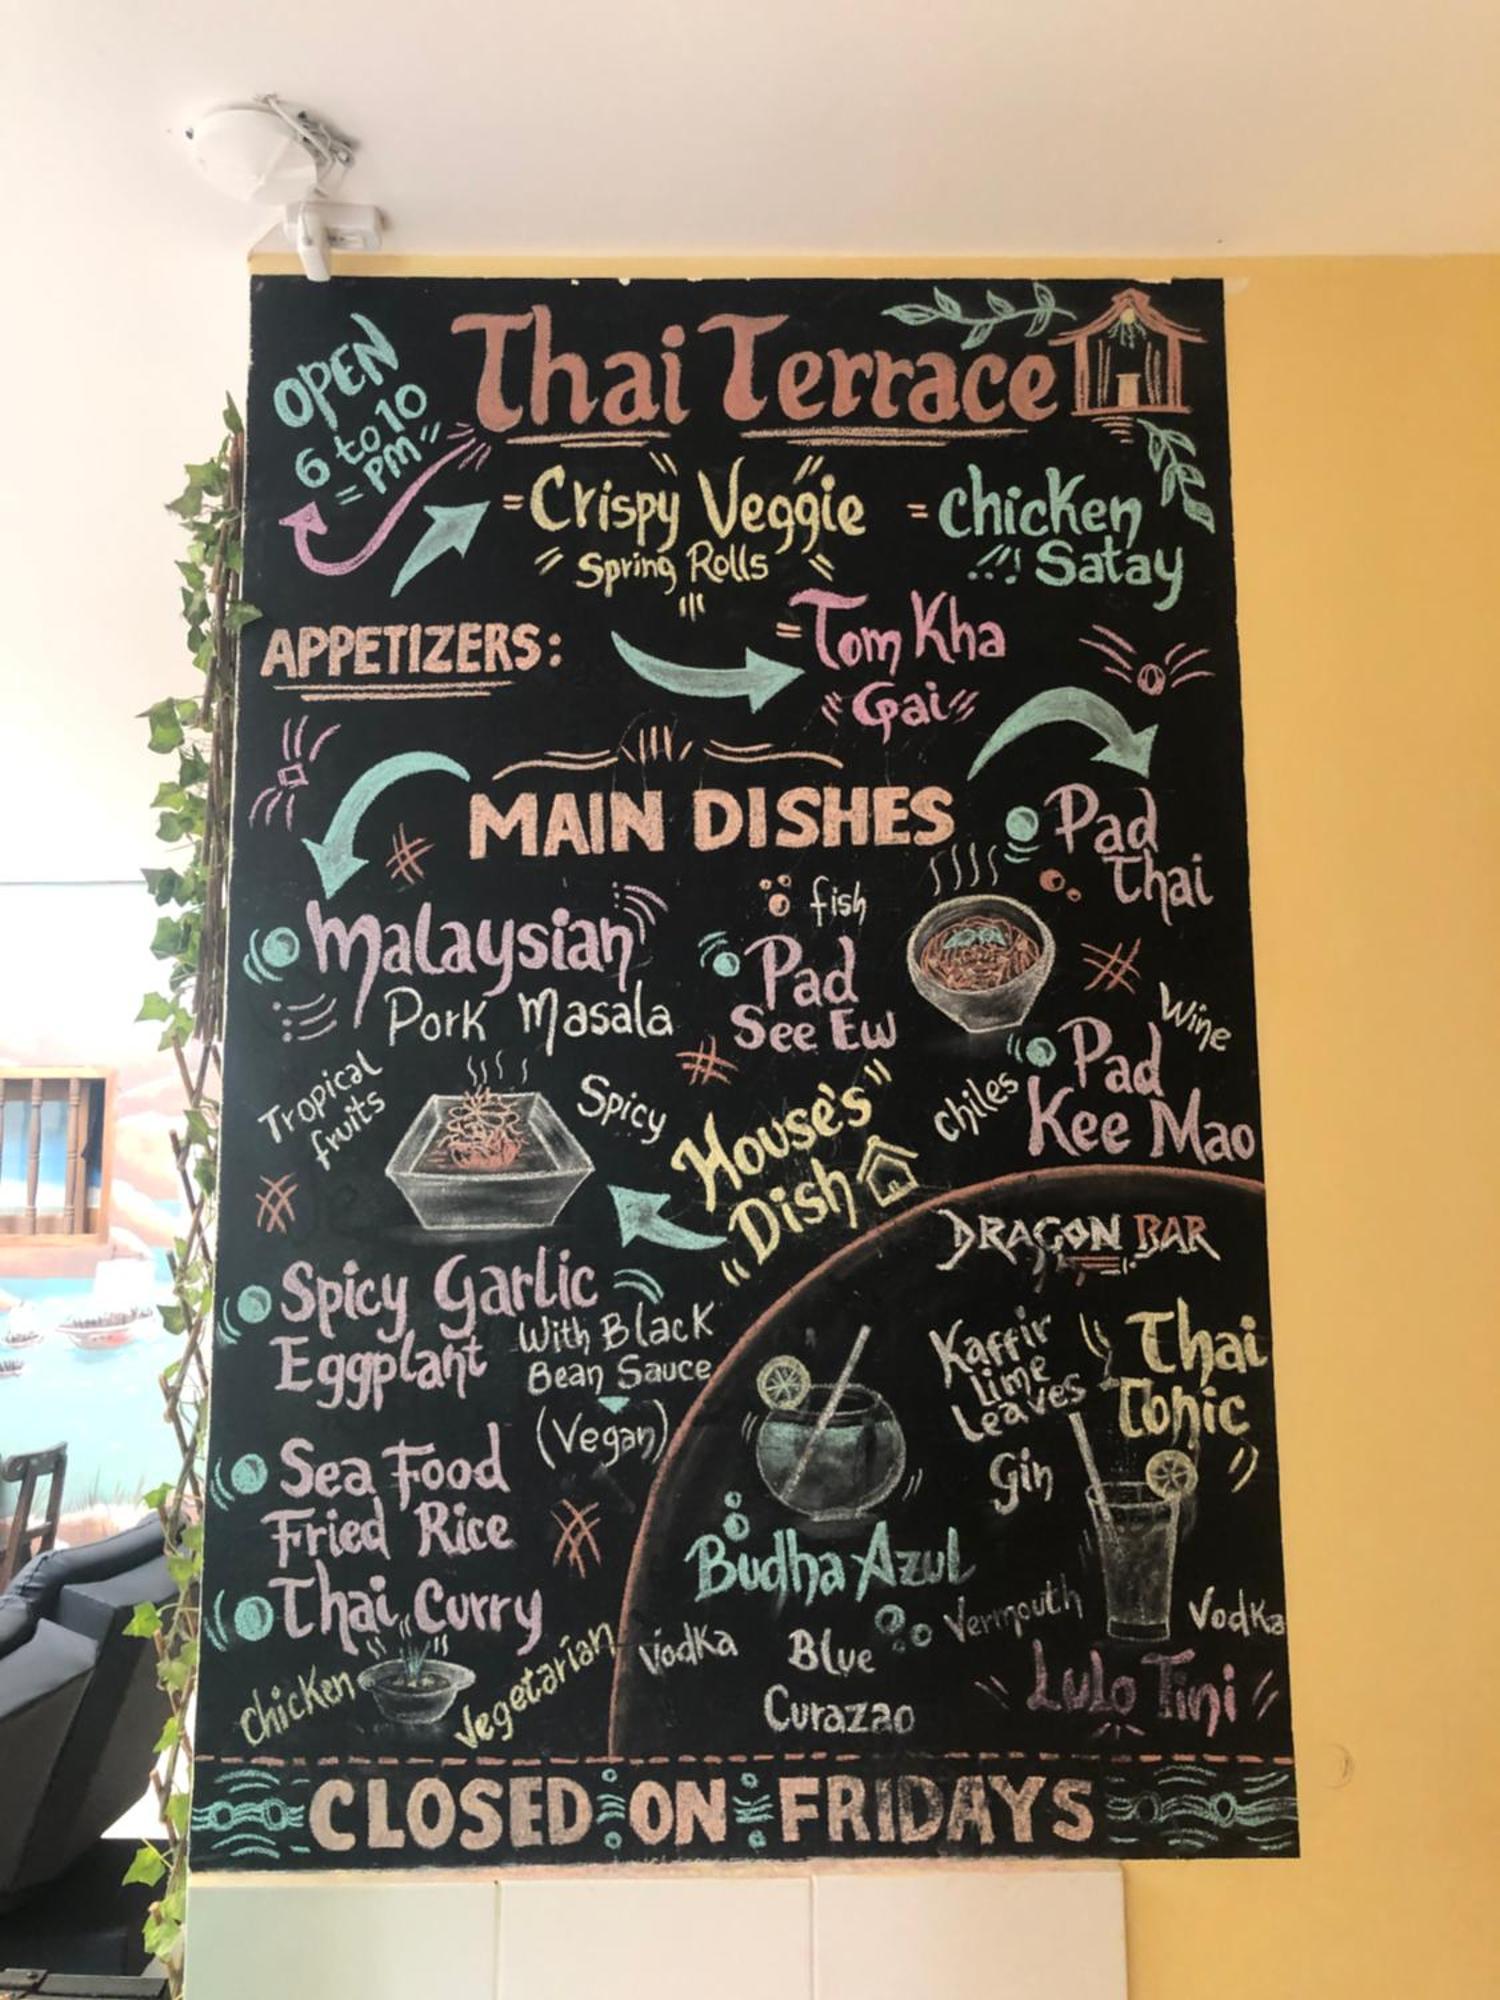 OPEN
6 to 10
PM
Thai Terrace
Crispy Veggie
Spring Rolls
Chicken
Satay
APPETIZERS:
Tom Kha
Gai
MAIN DISHES
Pad
Thai
fish
Malaysian
Pork Masala
Pad
See Ew
Wine
Pad
Kee Mao
Chiles
Tropical
fruits
Spicy
House's
Dish
Spicy Garlic
Eggplant
With Black
Bean Sauce
(Vegan)
Sea Food
Fried Rice
Thai Curry
Chicken
Vegetarian
DRAGON BAR
Kaffir
Lime
Leaves
Thai
Tonic
Gin
Budha Azul
Vodka
Blue
Curazao
Vermouth
Vodka
Lulo Tini
CLOSED ON FRIDAYS